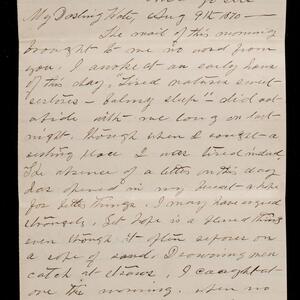 My Darling Kate, Aug 9th 1870 —
The mail of this morning
brought to me no word from
you. I awoke at an early hour
of this day. "Tired natures sweet
restorer - balmy sleep" - did not
abide with me long on last
night, though when I sought a
resting place I was tired indeed.
The absence of a letter on this day
has opened in my heart a hope
for better things. I may have argued
strangely. Yet hope is a thing
even though it often reposes on
a rope of sand. Drowning men
catch at straws. I caught at
one this morning, when no